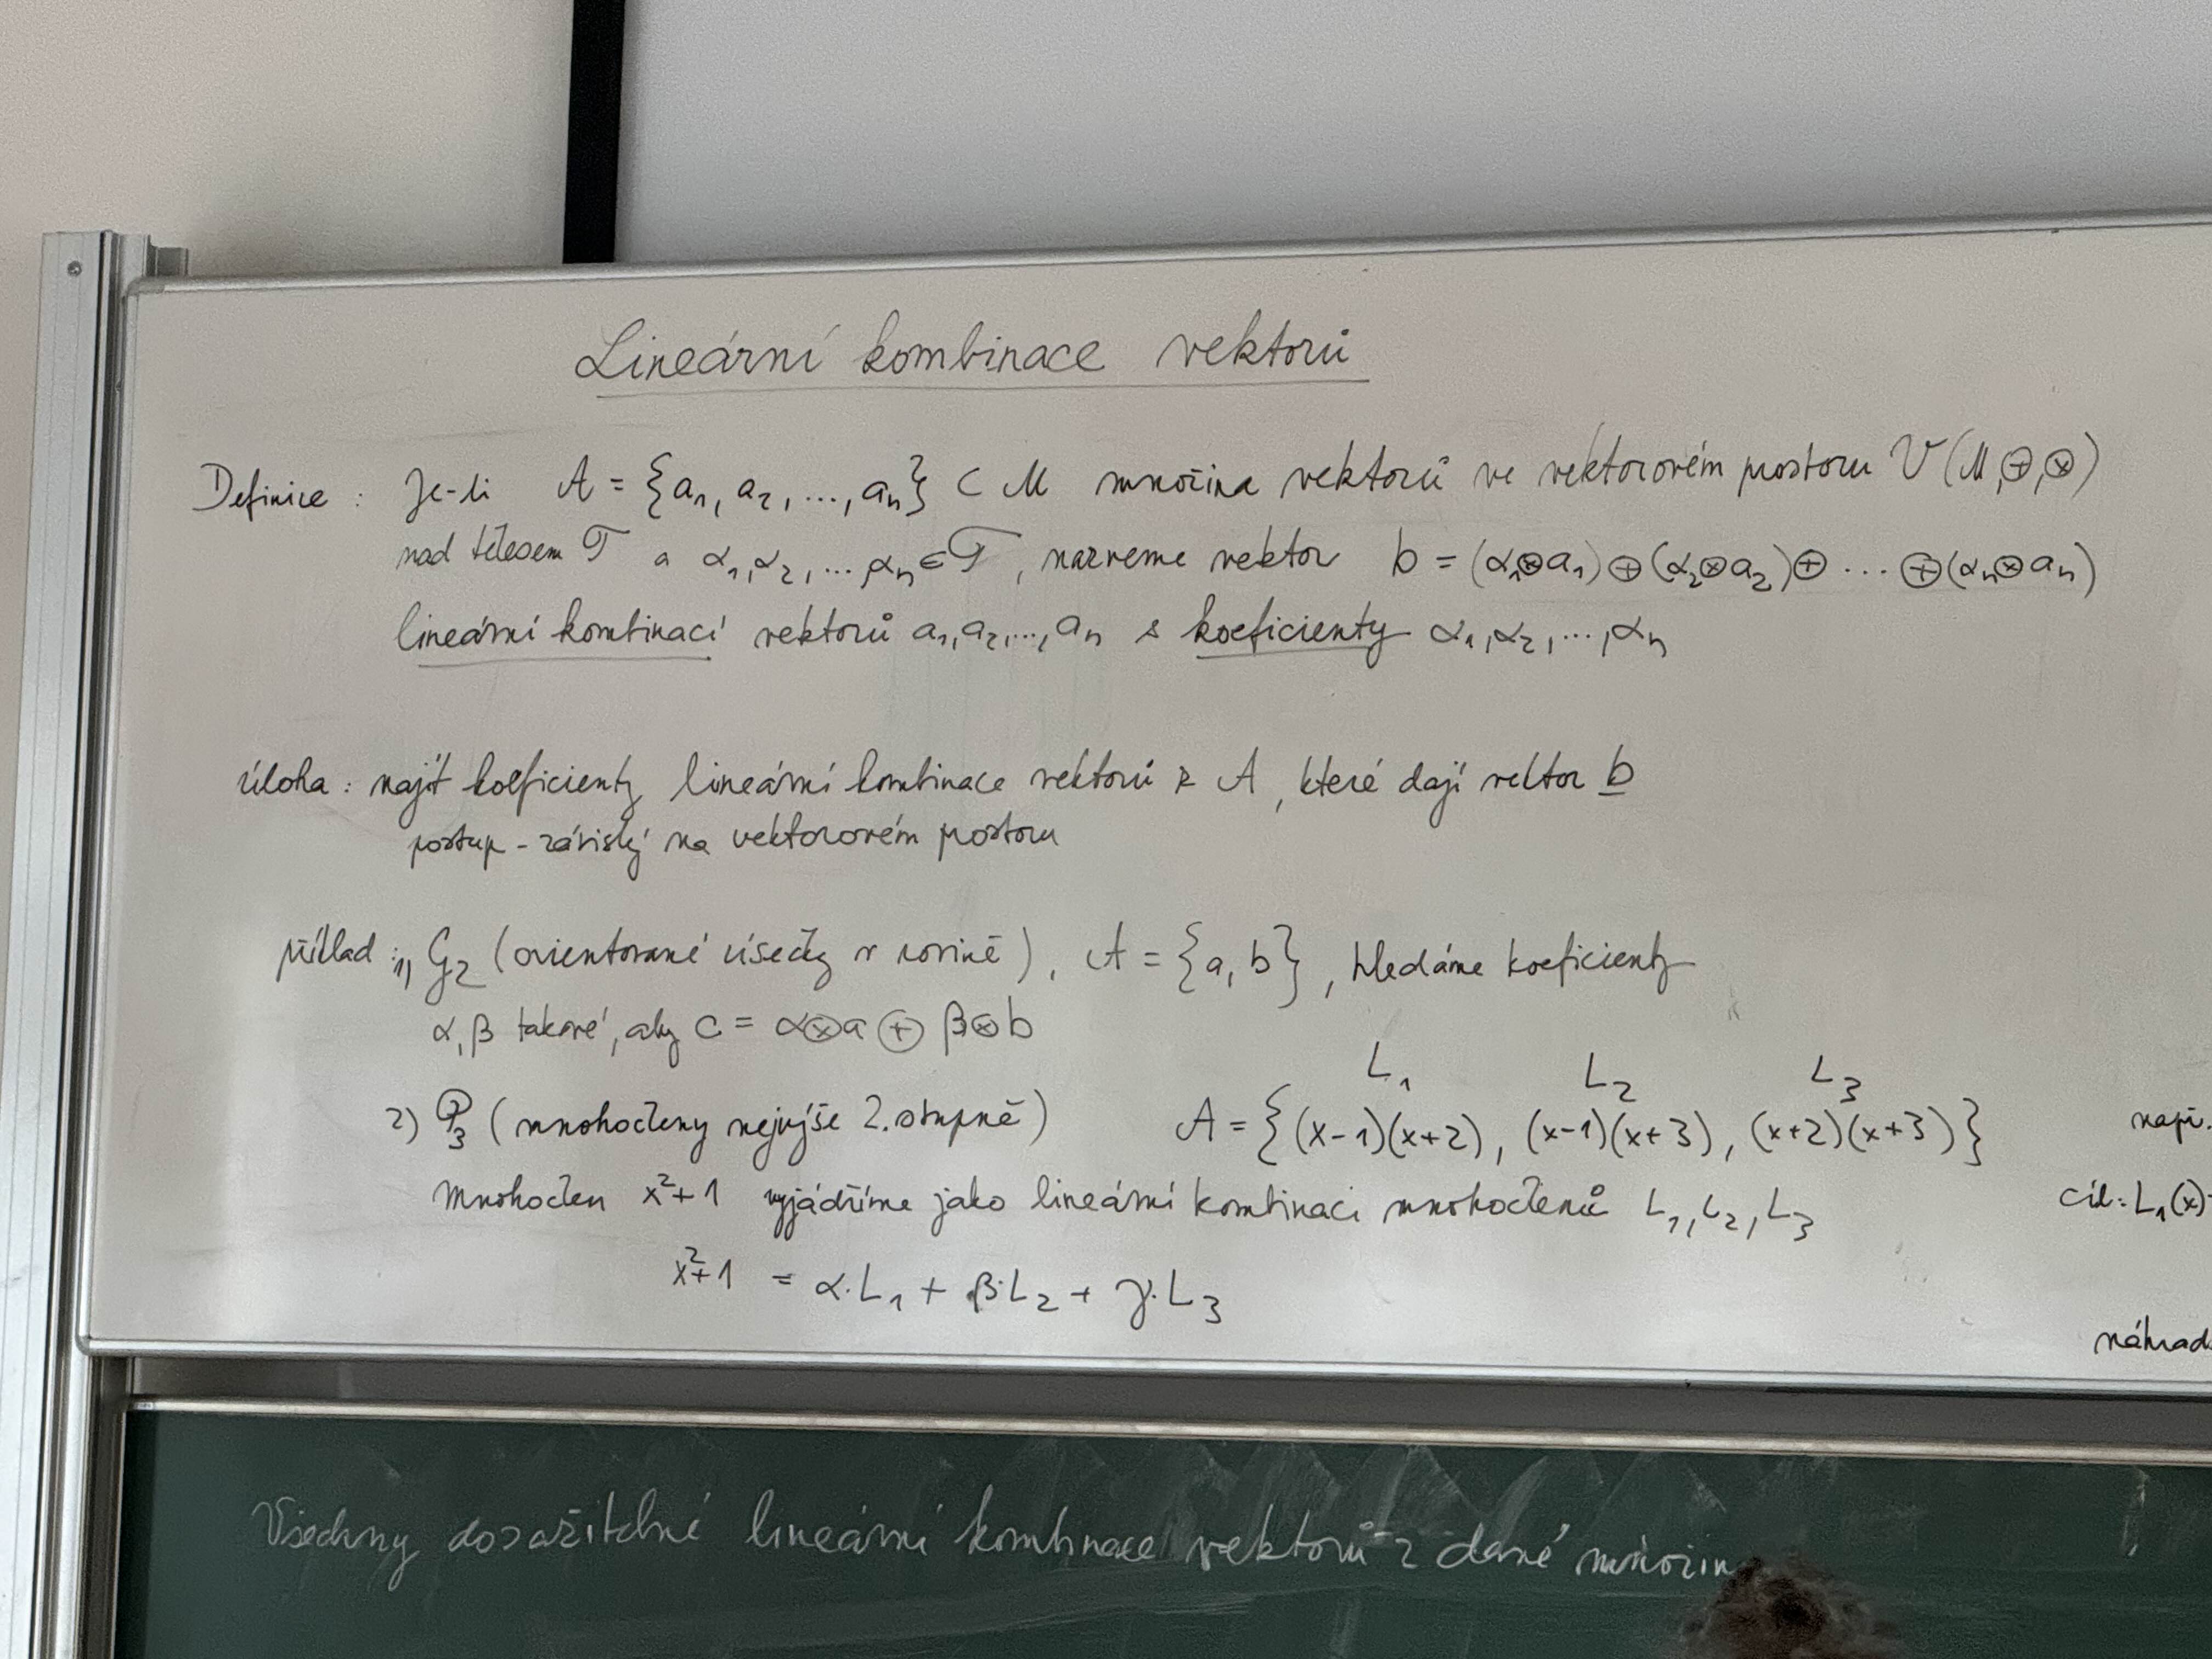 Lineární kombinace vektorů
Definice : Je-li A = {a₁, a₂, ..., aₙ} ⊂ M množina vektorů ve vektorovém prostoru V(M,⊕,⊗)
nad tělesem T a α₁,α₂,...,αₙ∈T, nazveme vektor b = (α₁⊗a₁)⊕(α₂⊗a₂)⊕ ... ⊕(αₙ⊗aₙ)
lineární kombinací vektorů a₁,a₂,...,aₙ s koeficienty α₁,α₂,...,αₙ
úloha : najít koeficienty lineární kombinace vektorů z A, které dají vektor b
postup - závislý na vektorovém prostoru
příklad : 1) G₂ (orientované úsečky v rovině), A = {a, b}, hledáme koeficienty
α, β takové, aby c = α⊗a ⊕ β⊗b
L₁ L₂ L₃
2) P₃ (mnohočleny nejvýše 2. stupně) A = {(x-1)(x+2), (x-1)(x+3), (x+2)(x+3)}
Mnohočlen x²+1 vyjádříme jako lineární kombinaci mnohočlenů L₁, L₂, L₃
x²+1 = α·L₁ + β·L₂ + γ·L₃
např.
cíl: L₁(x)
náhrad
Všechny dosažitelné lineární kombinace vektorů z dané množin